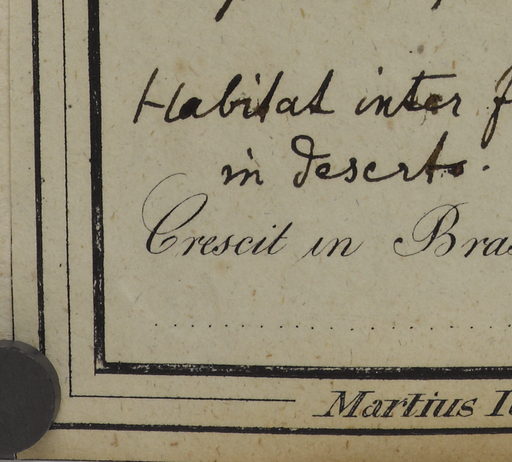 Habitat inter
in deserto.
Crescit in Bras
Martius